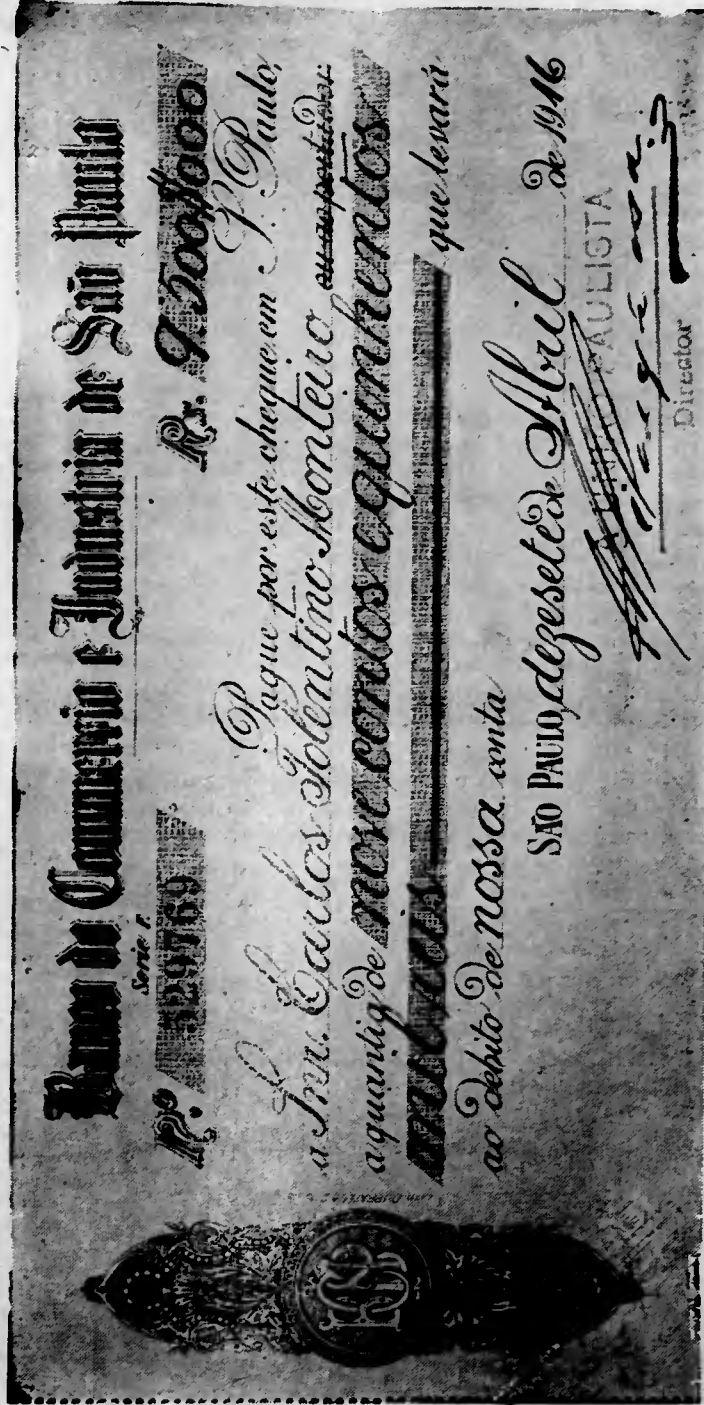 Banco do Commercio e Industria de São Paulo
Serie 1.
Nº. 129769 Rs. 9:500$000
Pague por este cheque em S. Paulo,
a Snr. Carlos Tolentino Monteiro ou ao portador
a quantia de nove contos e quinhentos
mil reis que levará
ao debito de nossa conta
SÃO PAULO, dezesete de Abril de 1916
PAULISTA
Director